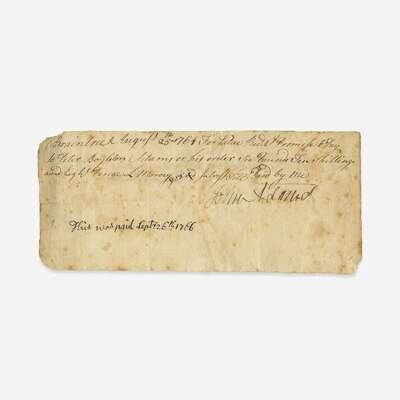 Braintree August 25th 1764 For Value Recd I promise to Pay
to Peter Boylston Adams or his order Six Pounds Ten Shillings
and Eight Pence L Money
by me
John Adams
This was paid Septr 26th 1766